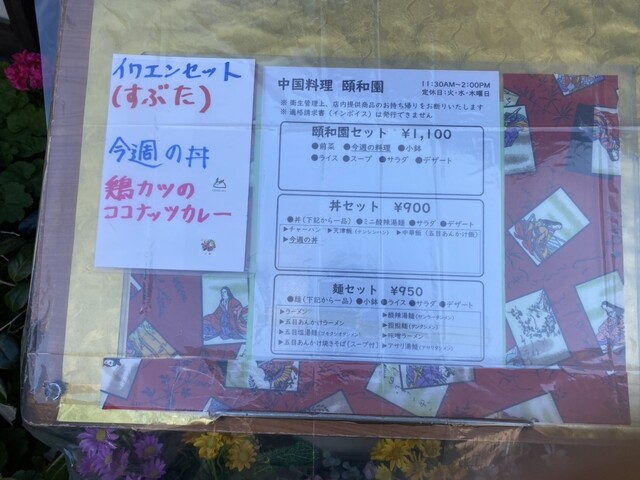 イワエンセット
(すぶた)
今週の丼
鶏カツの
ココナッツカレー
中国料理 頤和園
11:30AM~2:00PM
定休日:火・水・木曜日
※ 衛生管理上、店内提供商品のお持ち帰りをお断りいたします
※ 適格請求書(インボイス)は発行できません
頤和園セット ¥1,100
●前菜 ●今週の料理 ●小鉢
●ライス ●スープ ●サラダ ●デザート
丼セット ¥900
●丼(下記から一品) ●ミニ酸辣湯麺 ●サラダ ●デザート
▶チャーハン ▶天津飯(テンシンハン) ▶中華飯(五目あんかけ飯)
▶今週の丼
麺セット ¥950
●麺(下記から一品) ●小鉢 ●ライス ●サラダ ●デザート
▶ラーメン
▶五目あんかけラーメン
▶五目塩湯麺
▶五目あんかけ焼きそば(スープ付)
▶酸辣湯麺(サンラータンメン)
▶担担麺(タンタンメン)
▶味噌ラーメン
▶アサリ湯麺(アサリタンメン)